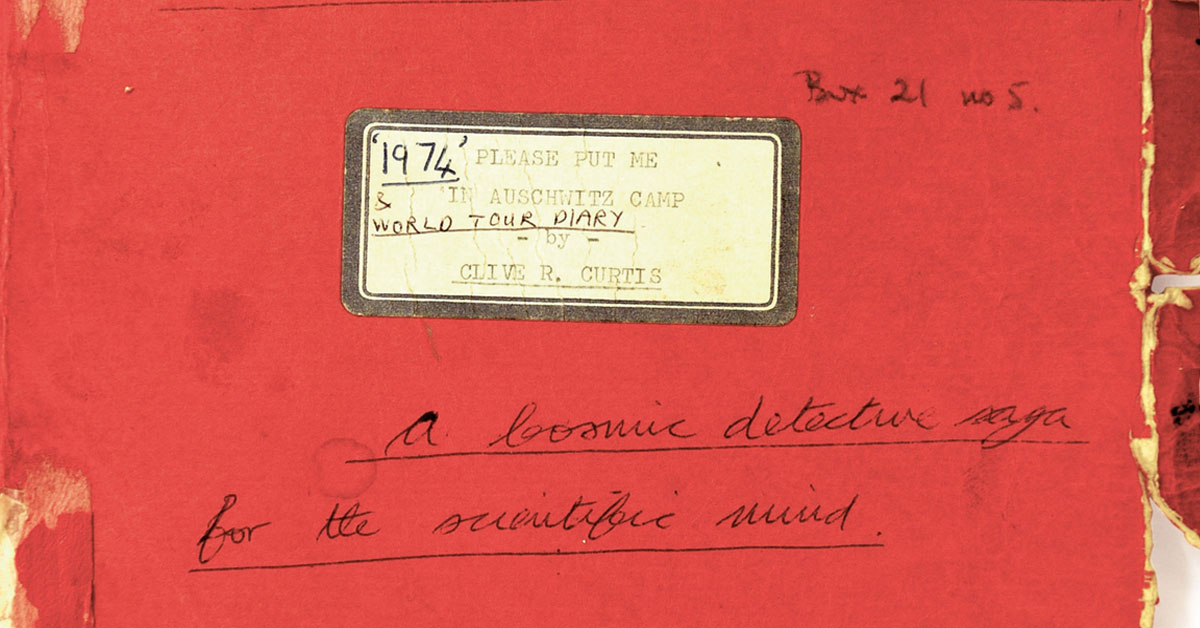 Box 21 no 5.
'1974' PLEASE PUT ME
& 'IN AUSCHWITZ CAMP
WORLD TOUR DIARY
- by -
CLIVE R. CURTIS
a Cosmic detective saga
for the scientific mind.